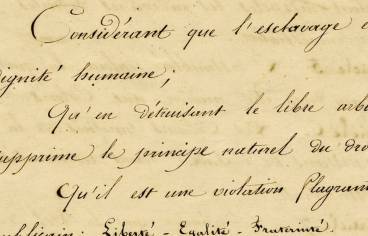 Considérant que l'esclavage
dignité humaine;
Qu'en détruisant le libre arb
supprime le principe naturel du dro
Qu'il est une violation flagran
publicain: Liberté - Egalité - Fraternité.